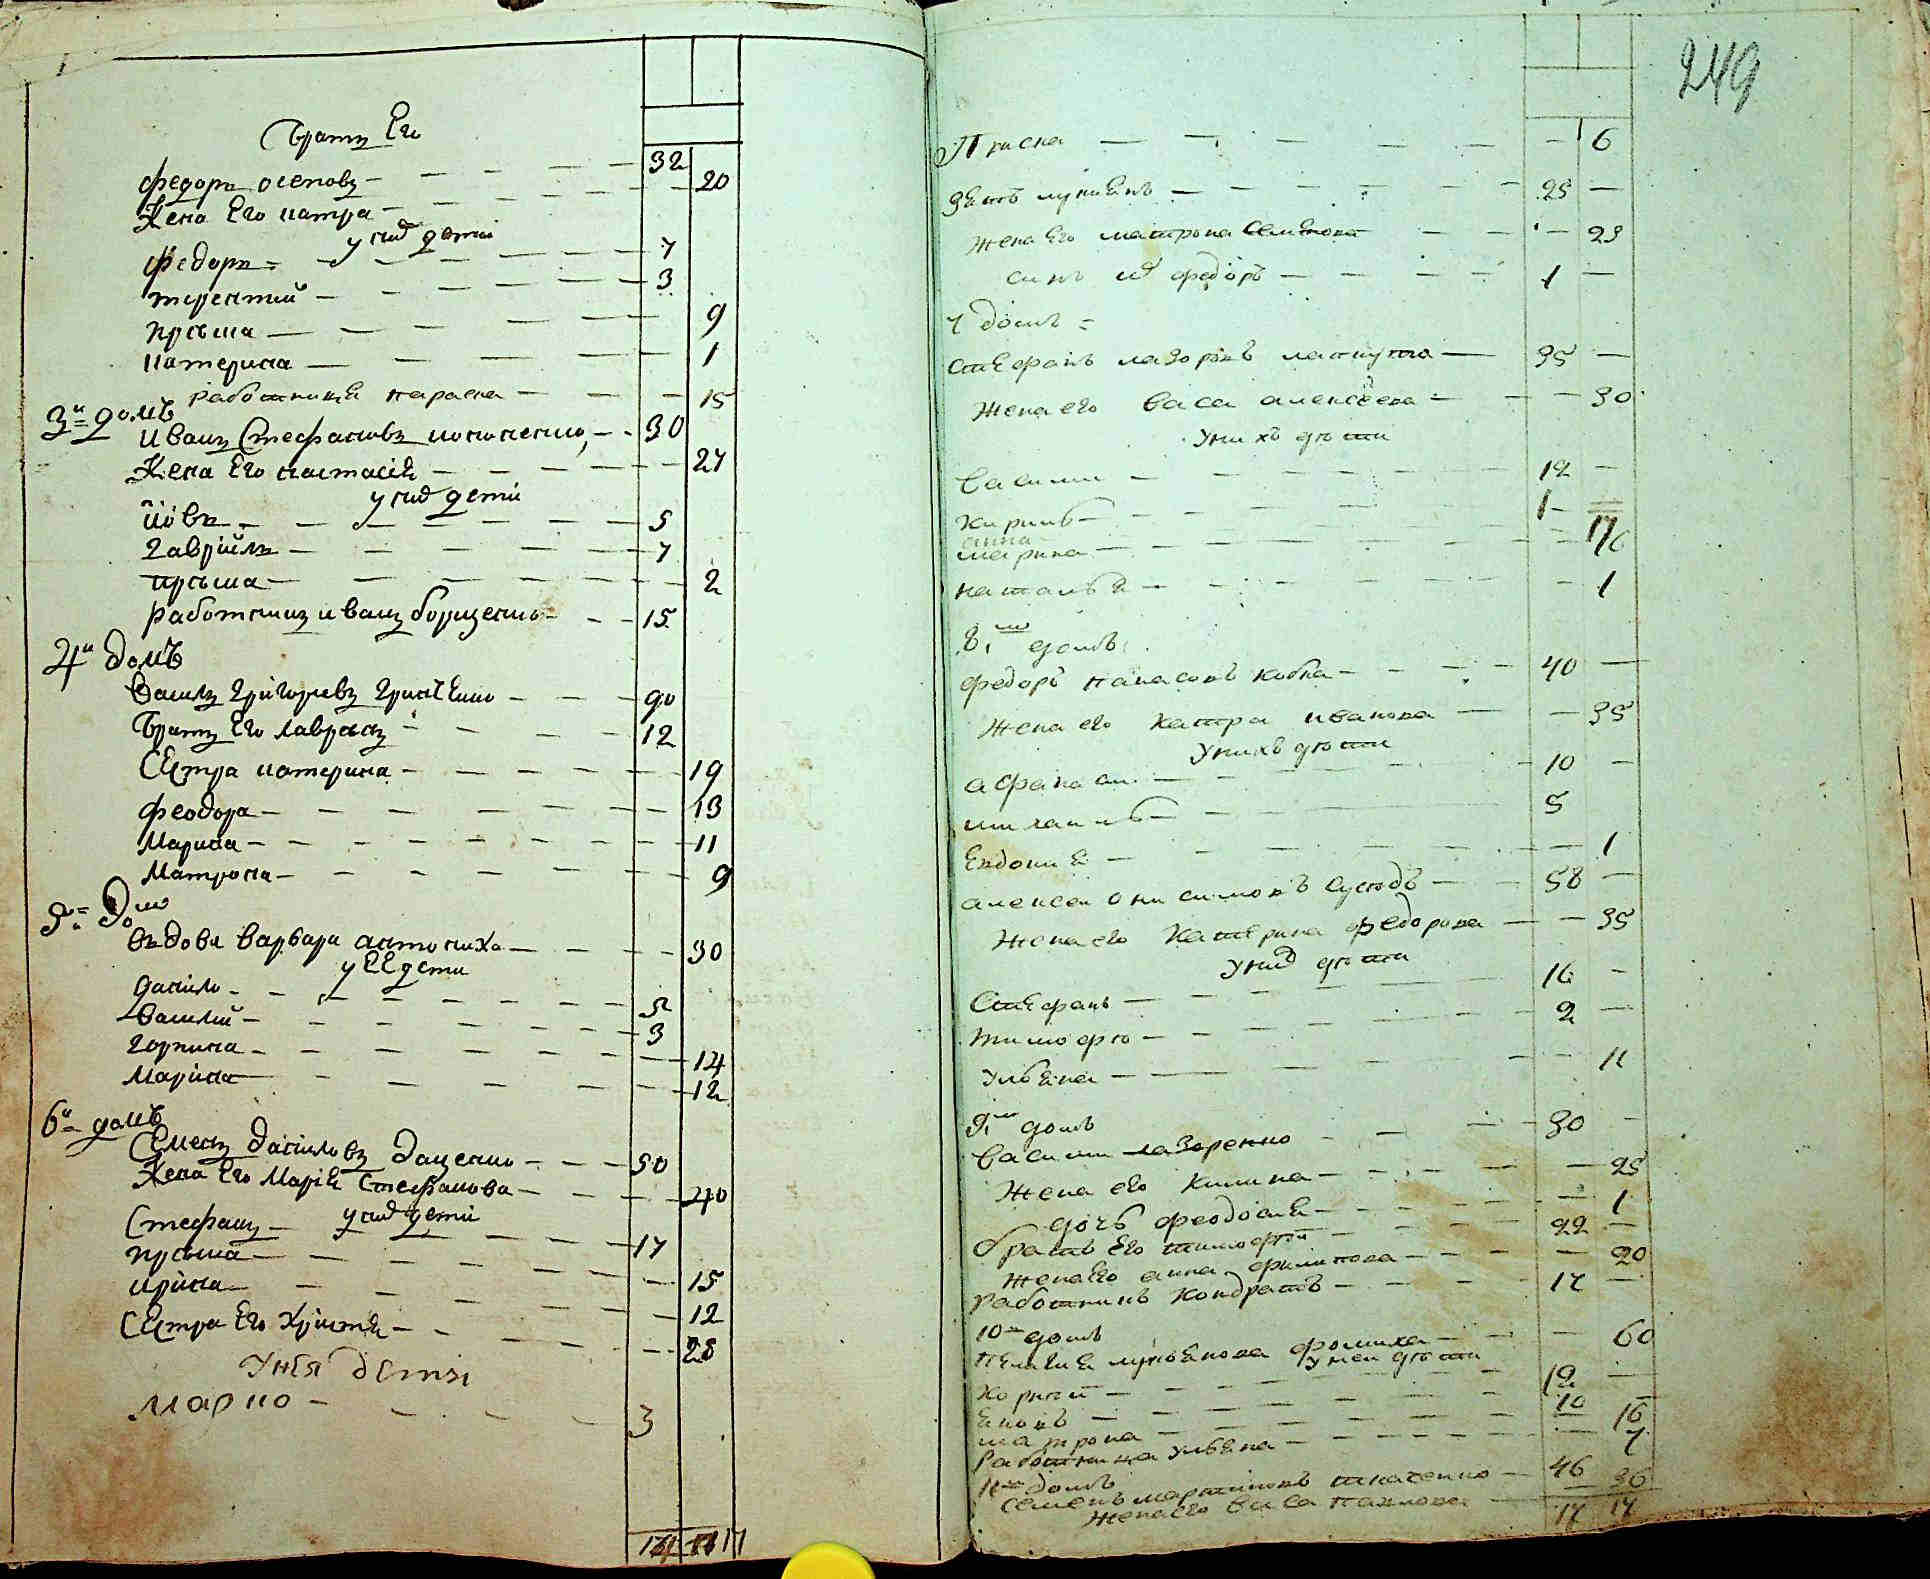 братъ Его
федоръ осеповъ 32
Жена Его катра 20
у них дети
федоръ 7
терентий 3
прсьша 9
катерина 1
работница параска 15
3й домъ
Иванъ Стефановъ кононенко 30
Жена Его настасiя 27
у них детi
йовъ 5
гаврiйлъ 7
прсьша 2
работникъ иванъ борщенко 15
4й домъ
Василь григориевъ гриненко 90
братъ Его лаврэнъ 12
Сестра катерина 19
феодора 13
Марина 11
Матрона 9
5й домъ
вдова варвара антониха 30
у Ее дети
данило 5
василий 3
горпина 14
Марина 12
6й домъ
Семенъ данiловъ даценко 50
Жена Его Марiя Стефанова 40
у них детi
Стефанъ 17
прсьша 15
ирина 12
Сестра Его Христя 28
Унея детэi
марко 3
17 17
249
Праска 6
зять лукиянъ 25
жена Его матрона Семенова 23
синъ их федоръ 1
7 домъ
стефанъ лазоровъ лапкута 35
жена его васа алексеева 30
унихъ дѣти
васили 12
кирилъ 1
анна
марина 17 6
наталья 1
8й домъ
федоръ панасовъ кобка 40
жена его катра иванова 35
унихъ дѣти
афанаси 10
михаилъ 5
Евдокия 1
алексеи онисимовъ Сусѣдъ 58
жена его катерина федорова 35
уних дѣти
Стефанъ 16
тимофѣ 2
Ульяна 11
9й домъ
васили лазоренко 30
жена его килина 25
дочь феодосия 1
братъ Его тимофей 22
жена Его анна филипова 20
работникъ кондратъ 17
10й домъ
пелагия лукьянова фомиха 60
у неи дѣти
корней 12
яковъ 10
матрона 16
работница ульяна 7
11й домъ
семенъ мартиновъ ткаченко 46
жена его васа павлова 36
17 17